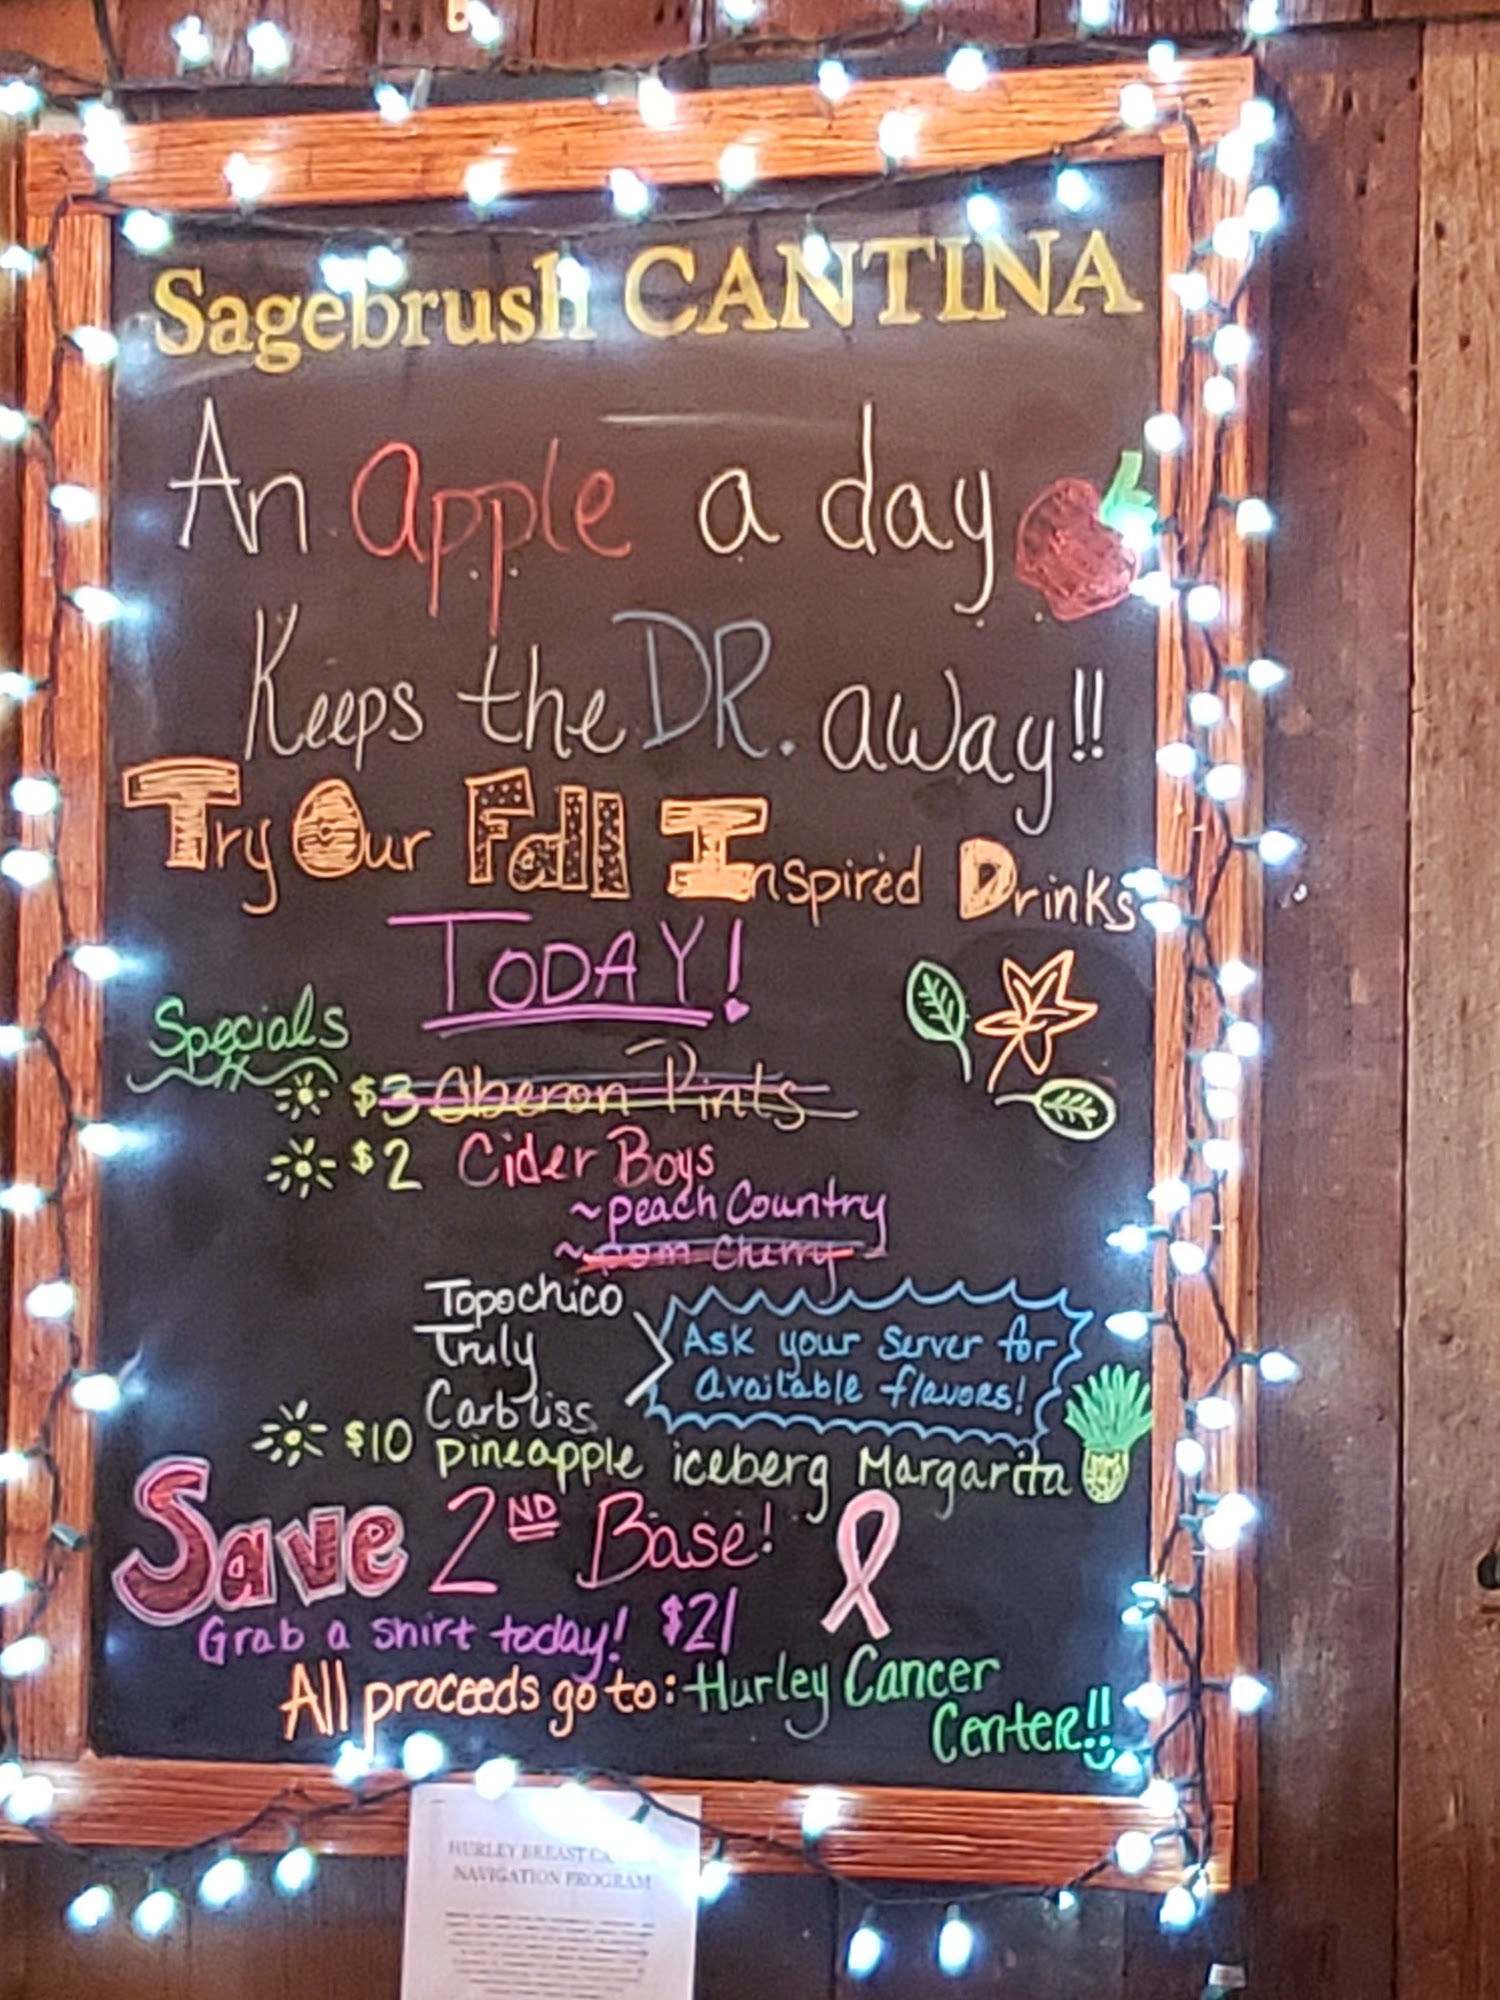 Sagebrush CANTINA
An Apple a day
Keeps the DR. away!!
Try Our Fall Inspired Drinks
TODAY!
Specials
$3 Oberon Pints
$2 Cider Boys
~peach Country
~pom Cherry
Topochico
Truly
Carbliss
Ask your Server for
Available flavors!
$10 pineapple iceberg Margarita
Save 2ND Base!
Grab a shirt today! $21
All proceeds go to: Hurley Cancer
Center!!
HURLEY BREAST
NAVIGATION PROGRAM